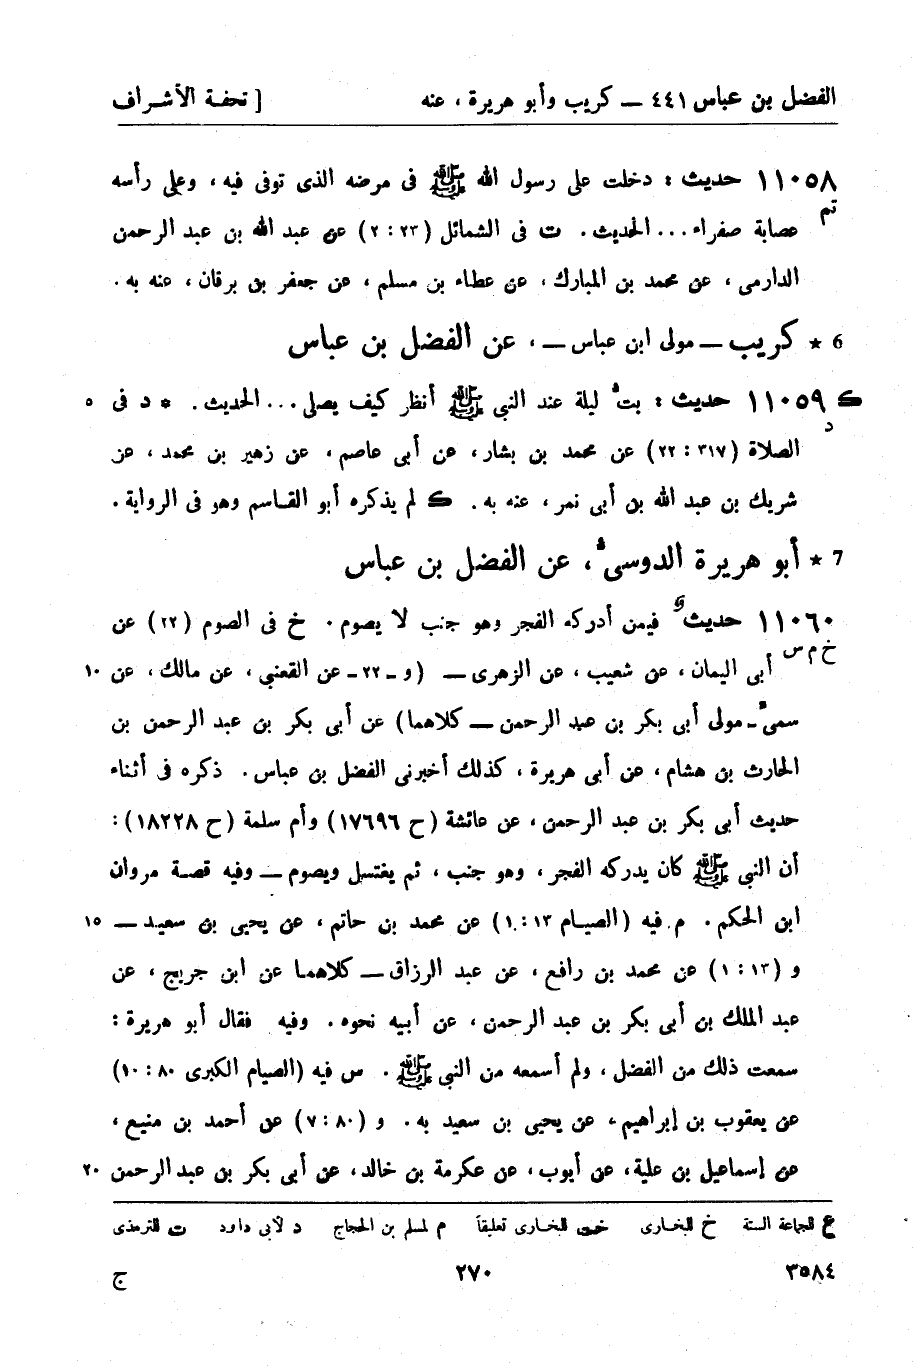 الفضل بن عباس ٤٤١ — كريب وأبو هريرة ، عنه [ تحفة الأشراف
١١٠٥٨ حديث : دخلت على رسول الله ﷺ فى مرضه الذى توفى فيه ، وعلى رأسه
تم عصابة صفراء ... الحديث . ت فى الشمائل (٢٣ : ٢) عن عبد الله بن عبد الرحمن
الدارمى ، عن محمد بن المبارك ، عن عطاء بن مسلم ، عن جعفر بن برقان ، عنه به .
6 * كريب — مولى ابن عباس — ، عن الفضل بن عباس
ك ١١٠٥٩ حديث : بت ليلة عند النبي ﷺ أنظر كيف يصلى ... الحديث . * د فى ٥
د
الصلاة (٣١٧ : ٢٢) عن محمد بن بشار ، عن أبى عاصم ، عن زهير بن محمد ، عن
شريك بن عبد الله بن أبى نمر ، عنه به . ك لم يذكره أبو القاسم وهو فى الرواية .
7 * أبو هريرة الدوسى ، عن الفضل بن عباس
١١٠٦٠ حديث فيمن أدركه الفجر وهو جنب لا يصوم . خ فى الصوم (٢٢) عن
خ م س
أبى اليمان ، عن شعيب ، عن الزهرى — (و ـ ٢٢ ـ عن القعنبي ، عن مالك ، عن ١٠
سمى ـ مولى أبى بكر بن عبد الرحمن — كلاهما) عن أبى بكر بن عبد الرحمن بن
الحارث بن هشام ، عن أبى هريرة ، كذلك أخبرنى الفضل بن عباس . ذكره فى أثناء
حديث أبى بكر بن عبد الرحمن ، عن عائشة (ح ١٧٦٩٦) وأم سلمة (ح ١٨٢٢٨) :
أن النبي ﷺ كان يدركه الفجر ، وهو جنب ، ثم يغتسل ويصوم — وفيه قصة مروان
ابن الحكم . م فيه (الصيام ١٣ : ١) عن محمد بن حاتم ، عن يحيى بن سعيد — ١٥
و (١٣ : ١) عن محمد بن رافع ، عن عبد الرزاق — كلاهما عن ابن جريج ، عن
عبد الملك بن أبى بكر بن عبد الرحمن ، عن أبيه نحوه . وفيه فقال أبو هريرة :
سمعت ذلك من الفضل ، ولم أسمعه من النبي ﷺ . س فيه (الصيام الكبرى ٨٠ : ١٠)
عن يعقوب بن إبراهيم ، عن يحيى بن سعيد به . و (٨٠ : ٧) عن أحمد بن منيع ،
عن إسماعيل بن علية ، عن أيوب ، عن عكرمة بن خالد ، عن أبى بكر بن عبد الرحمن ٢٠
ع للجماعة الستة خ للبخارى خت للبخارى تعليقاً م لمسلم بن الحجاج د لأبى داود ت للترمذى
٣٥٨٤ ٢٧٠ ج